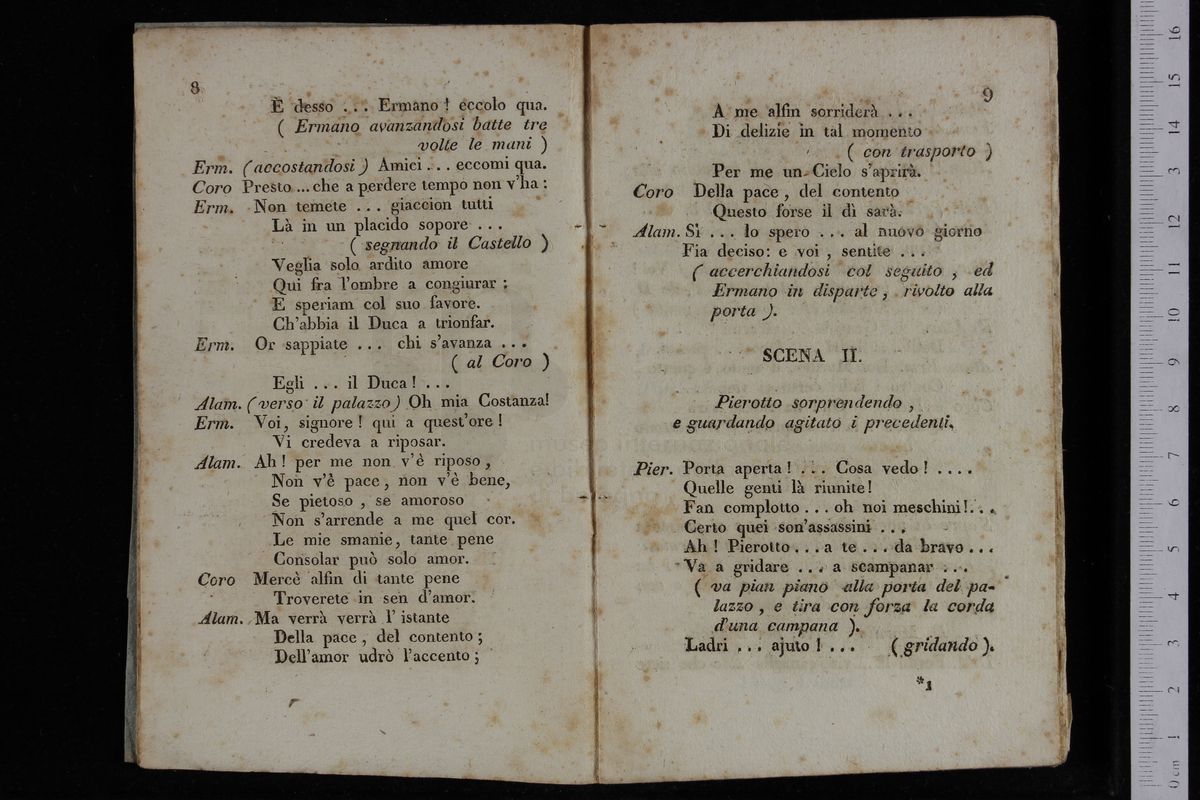 8
È desso . . . Ermano ! eccolo qua.
( Ermano avanzandosi batte tre
volte le mani )
Erm. ( accostandosi ) Amici . . . eccomi qua.
Coro Presto ... che a perdere tempo non v'ha :
Erm. Non temete . . . giaccion tutti
Là in un placido sopore . . .
( segnando il Castello )
Veglia solo ardito amore
Qui fra l'ombre a congiurar :
E speriam col suo favore.
Ch'abbia il Duca a trionfar.
Erm. Or sappiate . . . chi s'avanza . . .
( al Coro )
Egli . . . il Duca ! . . .
Alam. ( verso il palazzo ) Oh mia Costanza!
Erm. Voi, signore ! qui a quest'ore !
Vi credeva a riposar.
Alam. Ah ! per me non v'è riposo ,
Non v'è pace , non v'è bene,
Se pietoso , se amoroso
Non s'arrende a me quel cor.
Le mie smanie, tante pene
Consolar può solo amor.
Coro Mercè alfin di tante pene
Troverete in sen d'amor.
Alam. Ma verrà verrà l' istante
Della pace , del contento ;
Dell'amor udrò l'accento ;
9
A me alfin sorriderà . . .
Di delizie in tal momento
( con trasporto )
Per me un Cielo s'aprirà.
Coro Della pace , del contento
Questo forse il dì sarà.
Alam. Sì . . . lo spero . . . al nuovo giorno
Fia deciso: e voi , sentite . . .
( accerchiandosi col seguito , ed
Ermano in disparte , rivolto alla
porta ).
SCENA II.
Pierotto sorprendendo ,
e guardando agitato i precedenti.
Pier. Porta aperta ! . . . Cosa vedo ! . . . .
Quelle genti là riunite!
Fan complotto . . . oh noi meschini! . . .
Certo quei son'assassini . . .
Ah ! Pierotto . . . a te . . . da bravo . . .
Va a gridare . . . a scampanar . . .
( va pian piano alla porta del pa-
lazzo , e tira con forza la corda
d'una campana ).
Ladri . . . ajuto ! . . . ( gridando ).
*1
0 cm 1 2 3 4 5 6 7 8 9 10 11 12 13 14 15 16